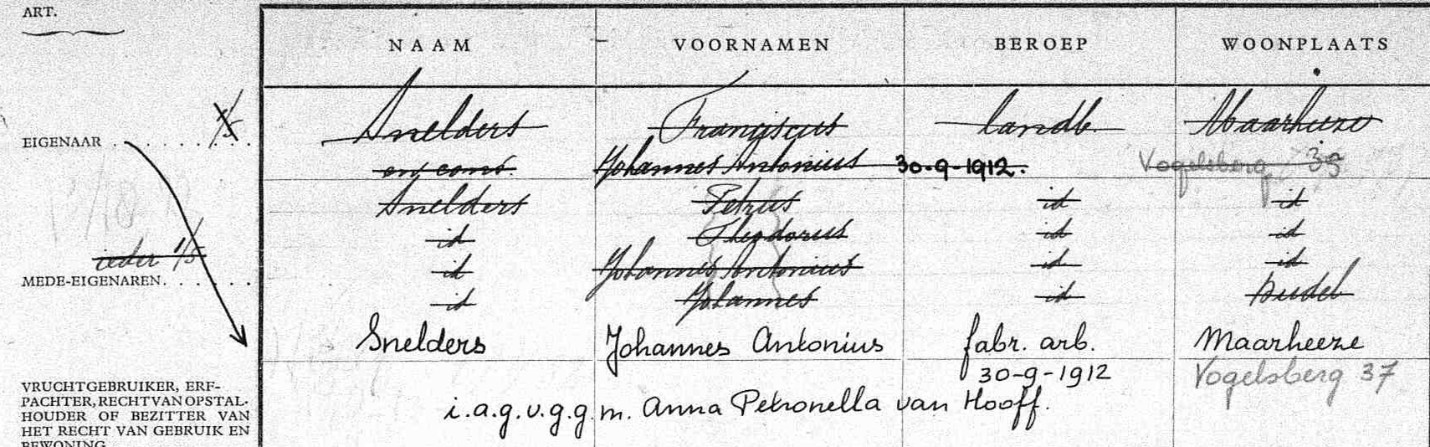 ART.
NAAM VOORNAMEN BEROEP WOONPLAATS
1/5
EIGENAAR Snelders Franciscus landb. Maarheeze
en cons. Johannes Antonius 30-9-1912. Vogelsberg 39
Snelders Petrus id id
id Theodorus id id
ieder 1/5
MEDE-EIGENAREN. id Johannes Antonius id id
id Johannes id Budel
Snelders Johannes Antonius fabr. arb. Maarheeze
30-9-1912 Vogelsberg 37
i.a.g.v.g.g.m. Anna Petronella van Hooff.
VRUCHTGEBRUIKER, ERF-
PACHTER, RECHT VAN OPSTAL-
HOUDER OF BEZITTER VAN
HET RECHT VAN GEBRUIK EN
BEWONING